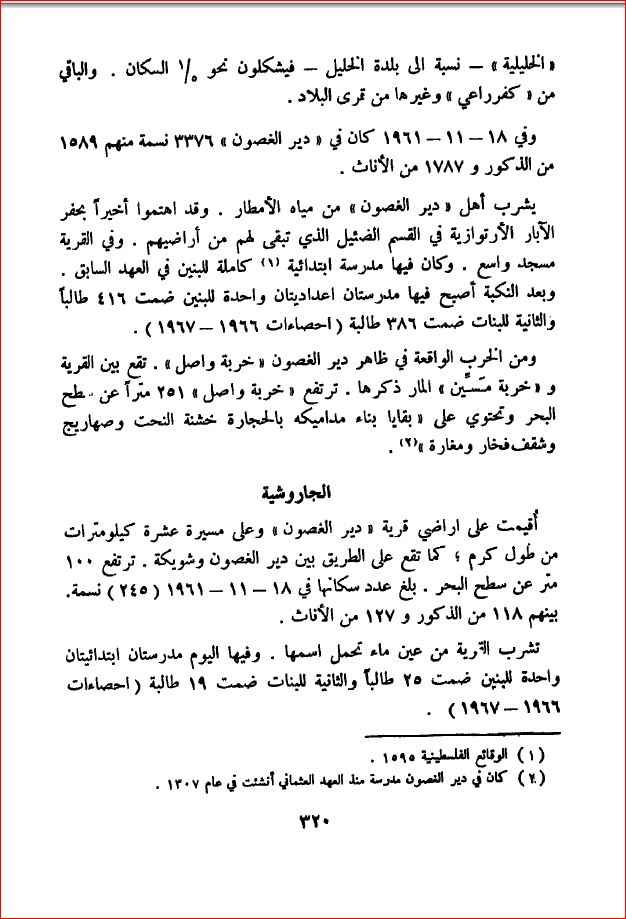 « الخليلية » – نسبة الى بلدة الخليل – فيشكلون نحو ١/٥ السكان . والباقي
من « كفرراعي » وغيرها من قرى البلاد .
وفي ١٨ – ١١ – ١٩٦١ كان في « دير الغصون » ٣٣٧٦ نسمة منهم ١٥٨٩
من الذكور و ١٧٨٧ من الأناث .
يشرب أهل « دير الغصون » من مياه الأمطار . وقد اهتموا أخيراً بحفر
الآبار الأرتوازية في القسم الضئيل الذي تبقى لهم من أراضيهم . وفي القرية
مسجد واسع . وكان فيها مدرسة ابتدائية (١) كاملة للبنين في العهد السابق .
وبعد النكبة أصبح فيها مدرستان اعداديتان واحدة للبنين ضمت ٤١٦ طالباً
والثانية للبنات ضمت ٣٨٦ طالبة ( احصاءات ١٩٦٦ – ١٩٦٧ ) .
ومن الخرب الواقعة في ظاهر دير الغصون « خربة واصل » . تقع بين القرية
و « خربة مَسِّين » المار ذكرها . ترتفع « خربة واصل » ٢٥١ متراً عن سطح
البحر وتحتوي على « بقايا بناء مداميكه بالحجارة خشنة النحت وصهاريج
وشقف فخار ومغارة » (٢) .
الجاروشية
أُقيمت على اراضي قرية « دير الغصون » وعلى مسيرة عشرة كيلومترات
من طول كرم ؛ كما تقع على الطريق بين دير الغصون وشويكة . ترتفع ١٠٠
متر عن سطح البحر . بلغ عدد سكانها في ١٨ – ١١ – ١٩٦١ ( ٢٤٥ ) نسمة.
بينهم ١١٨ من الذكور و ١٢٧ من الأناث .
تشرب القرية من عين ماء تحمل اسمها . وفيها اليوم مدرستان ابتدائيتان
واحدة للبنين ضمت ٢٥ طالباً والثانية للبنات ضمت ١٩ طالبة ( احصاءات
١٩٦٦ – ١٩٦٧ ) .
(١) الوقائع الفلسطينية ١٥٩٥ .
(٢) كان في دير الغصون مدرسة منذ العهد العثماني أنشئت في عام ١٣٠٧ .
٣٢٠